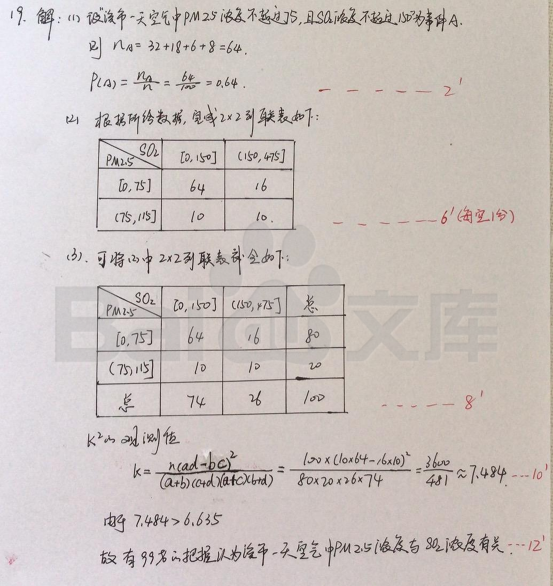 19. 解: (1) 设"该市一天空气中PM2.5浓度不超过75, 且SO₂浓度不超过150"为事件A.
则 nA = 32+18+6+8 = 64.
P(A) = nA/n = 64/100 = 0.64. ----- 2'
(2) 根据所给数据, 完成2×2列联表如下:
PM2.5 SO₂ [0,150] (150,475]
[0,75] 64 16
(75,115] 10 10. ----- 6' (每空1分)
(3). 可将(2)中2×2列联表补全如下:
PM2.5 SO₂ [0,150] (150,475] 总
[0,75] 64 16 80
(75,115] 10 10 20
总 74 26 100 ----- 8'
K²的观测值
k = n(ad-bc)²/(a+b)(c+d)(a+c)(b+d) = 100×(10×64-16×10)²/80×20×26×74 = 3600/481 ≈ 7.484. ---10'
由于 7.484 > 6.635
故有99%的把握认为该市一天空气中PM2.5浓度与SO₂浓度有关. ---12'
Bai 文库